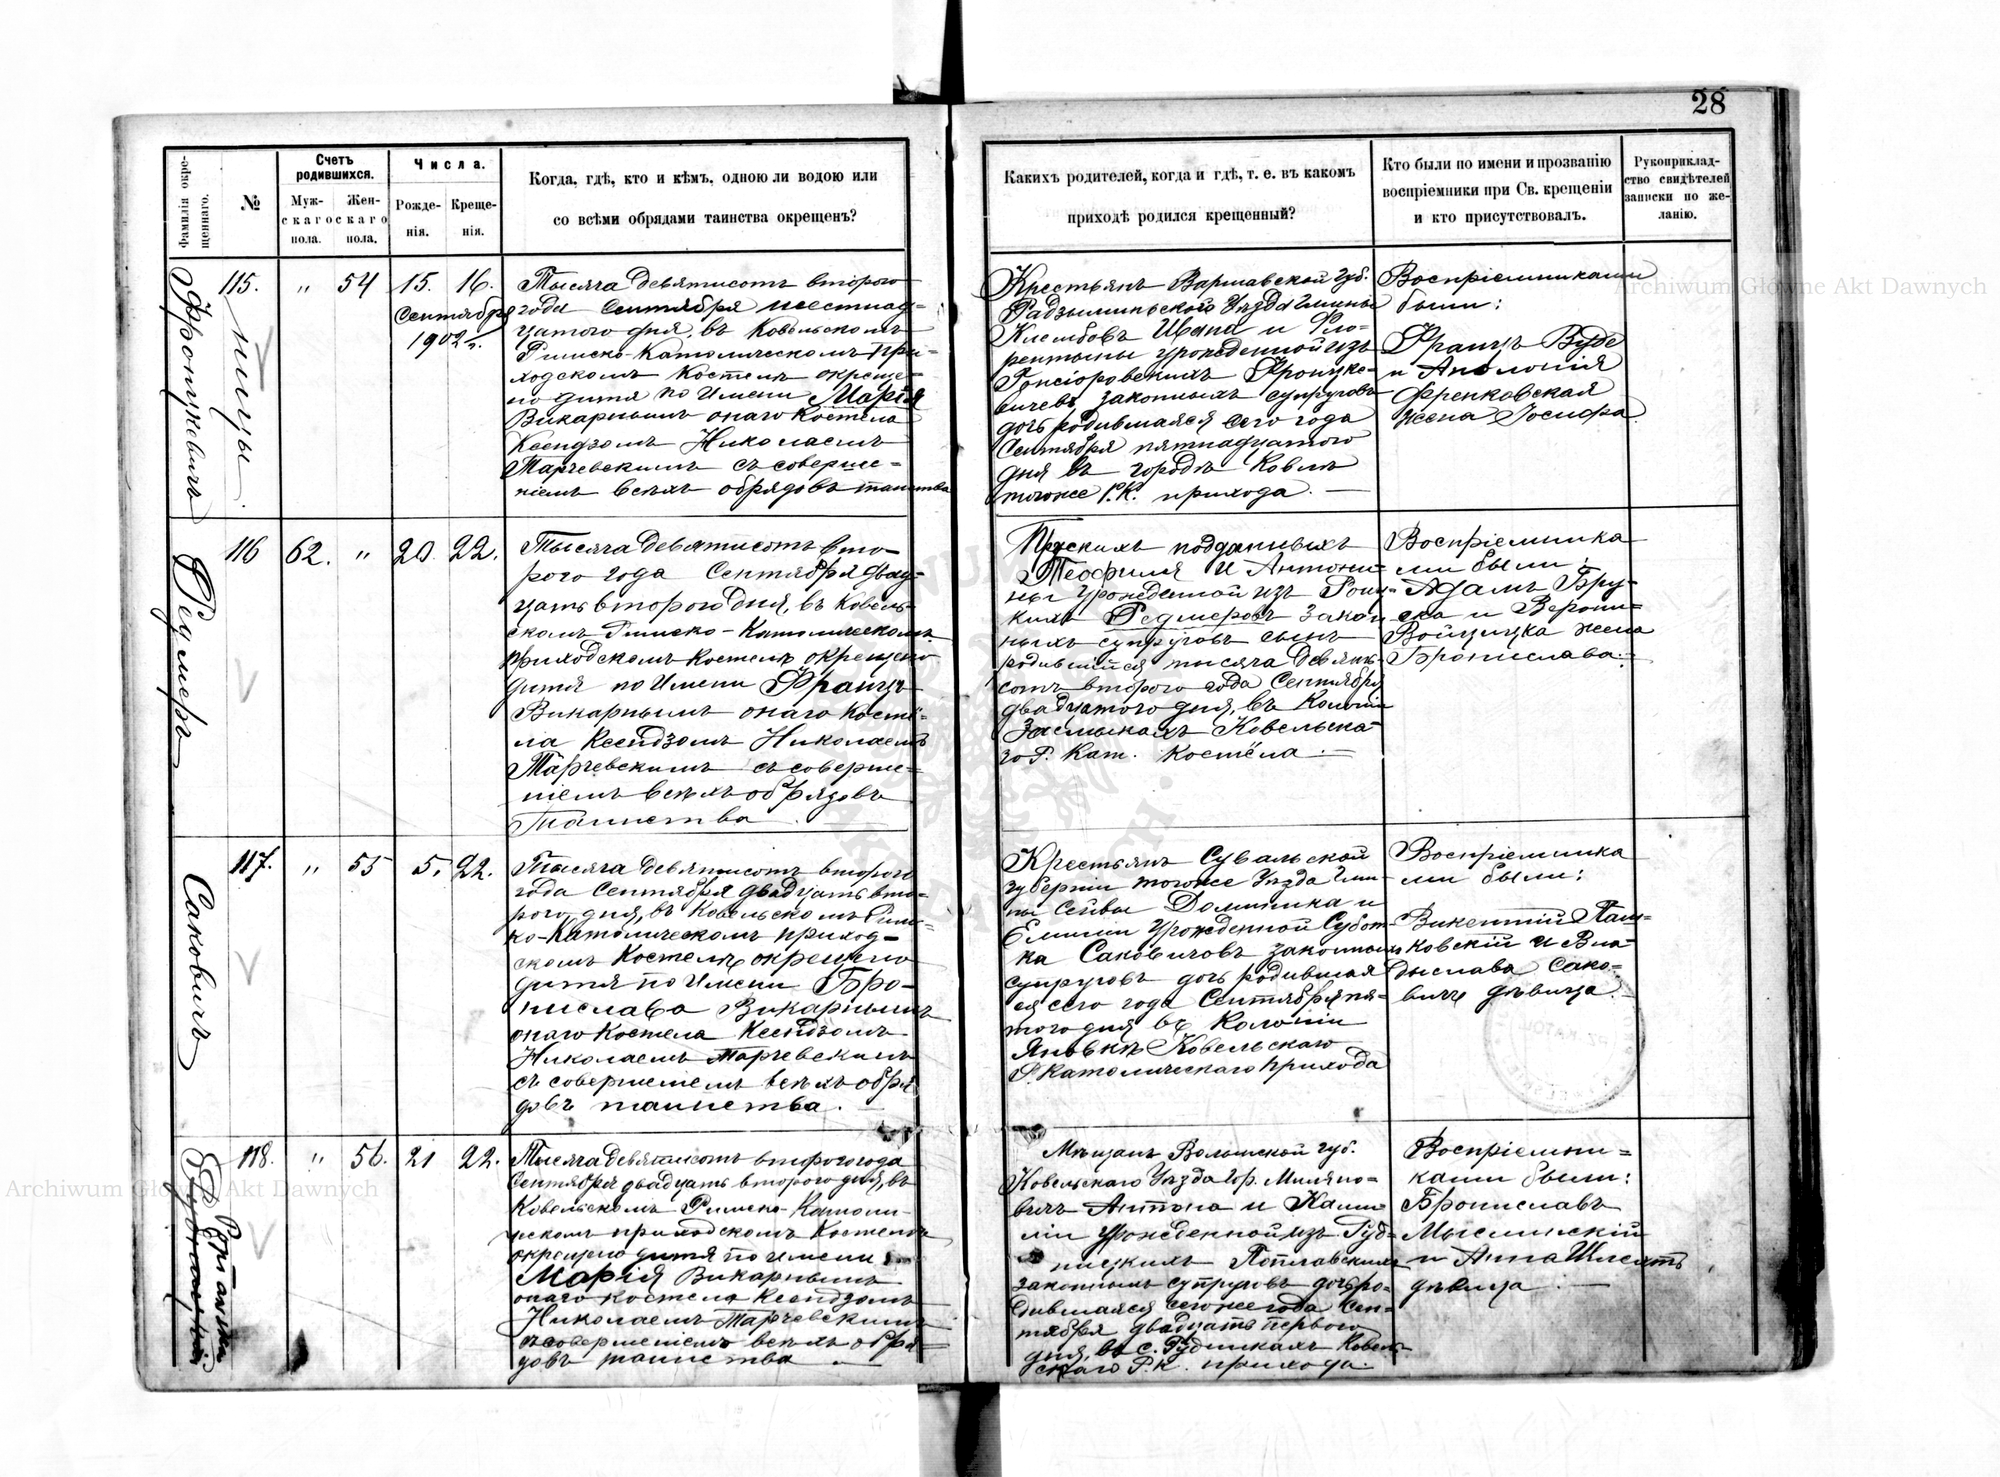 28
Фамилія окре-
щеннаго.
№
Счетъ
родившихся.
Муж-
скаго
пола.
Жен-
скаго
пола.
Числа.
Рожде-
нія.
Креще-
нія.
Когда, гдѣ, кто и кѣмъ, одною ли водою или
со всѣми обрядами таинства окрещенъ?
Какихъ родителей, когда и гдѣ, т. е. въ какомъ
приходѣ родился крещенный?
Кто были по имени и прозванію
воспріемники при Св. крещеніи
и кто присутствовалъ.
Рукоприклад-
ство свидѣтелей
записки по же-
ланію.
Фронцкевичъ
115.
"
54
15.
16.
Сентября
1902 г.
Тысяча девятисотъ второго
года Сентября шестнад-
цатого дня, въ Ковельскомъ
Римско-Католическомъ при-
ходскомъ костелѣ окреще-
но дитя по имени Марія
Викарнымъ онаго Костела
Ксендзомъ Николаемъ
Тарчевскимъ съ соверше-
ніемъ всѣхъ обрядовъ таинства
Крестьянъ Варшавской губ.
Радзыминьского Уѣзда Гмины
Клембовъ Ивана и Фло-
рентыны урожденной изъ
Гонсіоровскихъ Фронцке-
вичевъ законныхъ супруговъ
дочь родившаяся сего года
Сентября пятнадцатого
дня въ городѣ Ковлѣ
тогоже Р. К. прихода.
Воспріемниками
были:
Францъ Буде
и Аполонія
Френковская
жена Іосифа.
Редмеръ
116
62.
"
20.
22.
Тысяча девятисотъ вто-
рого года Сентября двад-
цать второго дня, въ Ковель-
скомъ Римско-Католическомъ
приходскомъ костелѣ окрещено
дитя по имени Францъ
Викарнымъ онаго Костё-
ла Ксендзомъ Николаемъ
Тарчевскимъ съ соверше-
ніемъ всѣхъ обрядовъ
Таинства
Прускихъ подданныхъ
Теофиля и Антони-
ны урожденной изъ
кихъ Редмеровъ закон
ныхъ супруговъ сынъ
родившійся тысяча девять-
сотъ второго года Сентября
двадцатого дня, въ Колоніи
Засмыкахъ Ковельска-
го Р. Кат. Костёла.
Воспріемника
ми были:
Адамъ Бру-
ска и Верони-
Войцицка жена
Бронислава.
Саковичъ
117.
"
55
5.
22.
Тысяча девятисотъ второго
года Сентября двадцать вто-
рого дня, въ Ковельскомъ Римс-
ко-Католическомъ приход-
скомъ Костелѣ окрещено
дитя по имени Бро-
нислава Викарнымъ
онаго Костела Ксендзомъ
Николаемъ Тарчевскимъ
съ совершеніемъ всѣхъ обря
довъ таинства.
Крестьянъ Сувальской
губерніи тогоже Уѣзда Гми-
ны Сейвы Доминика и
Емиліи Урожденной Субот-
ка Саковичовъ законныхъ
супруговъ дочь родившая
ся сего года Сентября пя-
того дня въ Колоніи
Яновкѣ Ковельскаго
Р. Католическаго прихода
Воспріемника
ми были:
Викентій Паш-
ковскій и Вла-
дыслава Сако-
вичъ дѣвица.
118.
"
56.
21
22.
Тысяча девятисотъ второго года
Сентября двадцать второго дня, въ
Ковельскомъ Римско-Католи-
ческомъ приходскомъ Костелѣ
окрещено дитя по имени
Марія Викарнымъ
онаго костела Ксендзомъ
Николаемъ Тарчевскимъ
съ совершеніемъ всѣхъ обря-
довъ таинства
Мѣщанъ Волынской губ.
Ковельскаго Уѣзда Гор. Миляно-
вичъ Антона и Ками
ліи Урожденной изъ Гуд-
ницкихъ Поплавскихъ
законныхъ супруговъ дочь ро-
дившаяся сегоже года Сен-
тября двадцать первого
дня, въ с. Рудникахъ Ковель-
скаго Р. К. прихода.
Воспріемни-
ками были:
Брониславъ
Мыслинскій
и Анна
дѣвица
Archiwum Główne Akt Dawnych
Archiwum Główne Akt Dawnych